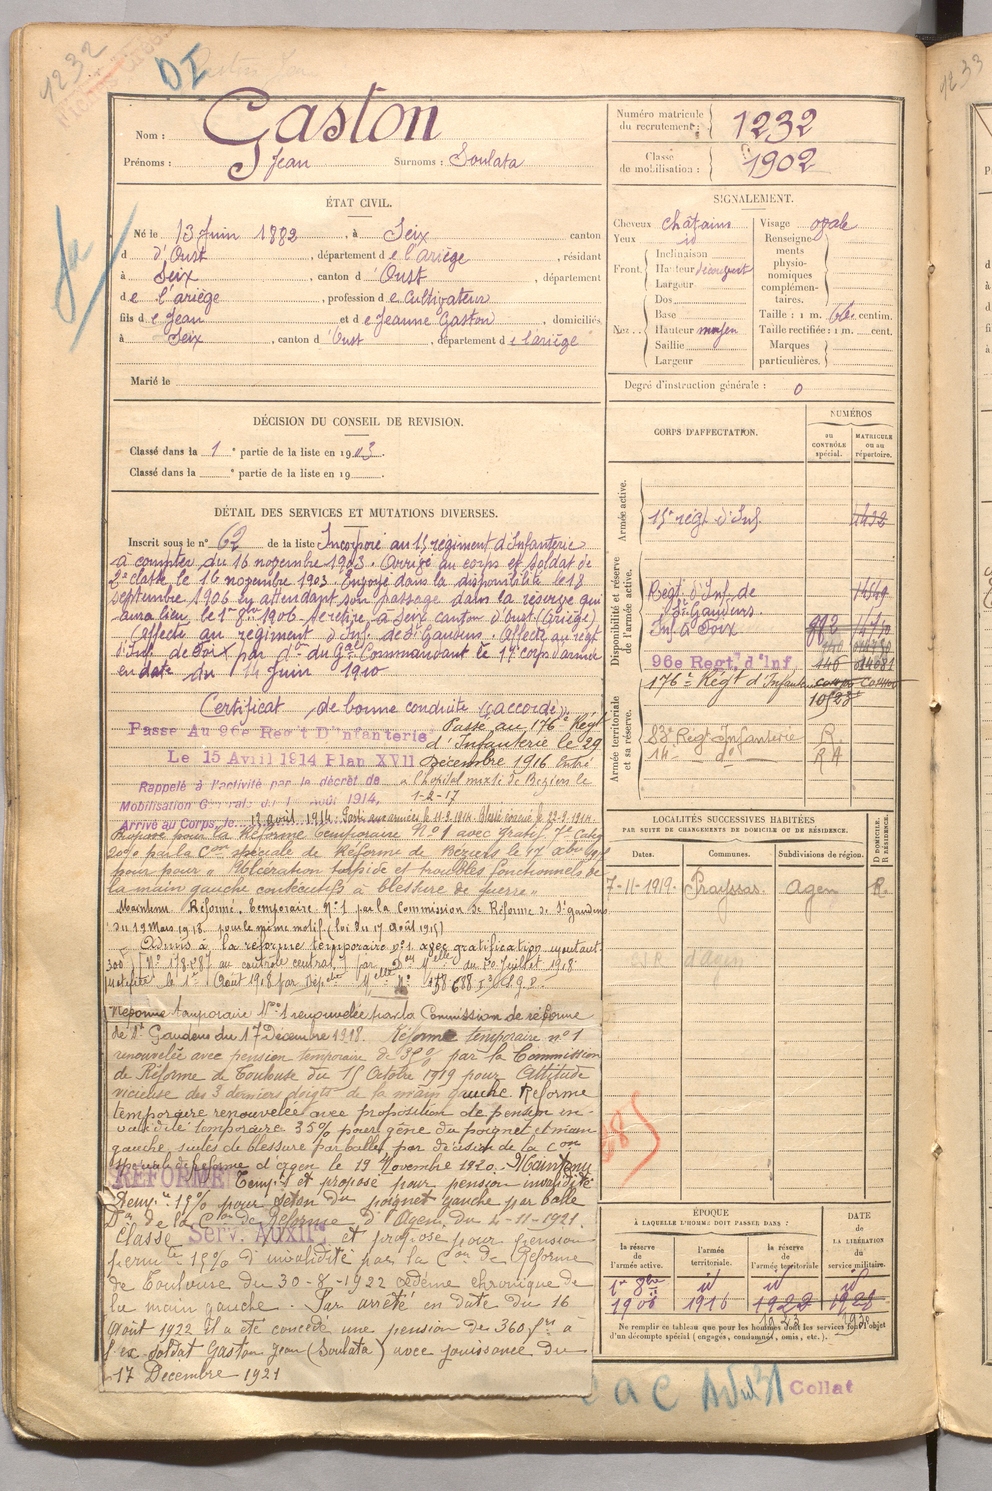 1232
DI
Nom : Gaston
Prénoms : Jean Surnoms : Soulata
Numéro matricule du recrutement : 1232
Classe de mobilisation : 1902
ÉTAT CIVIL.
Né le 13 Juin 1882, à Seix canton
d'Oust, département de l'ariège, résidant
à Seix, canton d'Oust, département
de l'ariège, profession de Cultivateur
fils de Jean et de Jeanne Gaston, domiciliés
à Seix, canton d'Oust, département de l'ariège
Marié le
SIGNALEMENT.
Cheveux châtains Visage ovale
Yeux id
Front. Inclinaison
Hauteur découvert
Largeur
Nez Dos
Base
Hauteur moyen
Saillie
Largeur
Renseignements physionomiques complémentaires.
Taille : 1 m. 66 centim.
Taille rectifiée : 1 m. cent.
Marques particulières.
Degré d'instruction générale : 0
DÉCISION DU CONSEIL DE REVISION.
Classé dans la 1e partie de la liste en 1903.
Classé dans la e partie de la liste en 19
DÉTAIL DES SERVICES ET MUTATIONS DIVERSES.
Inscrit sous le n° 62 de la liste Incorporé au 15 régiment d'Infanterie
à compter du 16 novembre 1903. Arrivé au corps et soldat de
2e classe le 16 novembre 1903. Envoyé dans la disponibilité le 18
septembre 1906 en attendant son passage dans la réserve qui
aura lieu le 1er 8bre 1906. Se retire à Seix canton d'Oust (Ariège)
Affecté au régiment d'Inf. de St Gaudens. Affecté au régt
d'Inf. de Foix par don du Gal Commandant le 17e corps d'armée
en date du 14 Juin 1910
Certificat de bonne conduite "accordé"
Passe Au 96e Reg't D'Infanterie
Le 15 Avril 1914 Plan XVII
Passé au 176e Régt
d'Infanterie le 29
Décembre 1916 Entré
à l'hopital mixte de Béziers le
1-2-17
Rappelé à l'activité par le décret de
Mobilisation Générale du 1er Août 1914,
Arrivé au Corps, le 12 août 1914.
Proposé pour la Réforme temporaire N°1 avec gratif. 7e Catég
20% par la Con spéciale de Réforme de Béziers le 17
pour pour "Ulcération torpide et troubles fonctionnels de
la main gauche consécutifs à blessure de guerre"
Maintenu Réformé temporaire N°1 par la Commission de Réforme de St gaudens
du 19 Mars 1918 pour le même motif (loi du 17 août 1915)
Admis à la réforme temporaire n°1 avec gratification montant
300f du 30 Juillet 1918
Réforme temporaire N°1 renouvelée par la Commission de réforme
de St Gaudens du 17 Décembre 1918. Réforme temporaire n°1
renouvelée avec pension temporaire de 35% par la Commission
de Réforme de Toulouse du 15 Octobre 1919 pour Attitude
vicieuse des 3 derniers doigts de la main gauche. Réforme
temporaire renouvelée avec proposition de pension in-
validité temporaire 35% pour gêne du poignet et main
gauche, suites de blessure par balle, par décision de la Con
spéciale de Réforme d'Agen le 19 Novembre 1920. Maintenu
REFORME Temp. 1 et proposé pour pension invalidité
Temp. re 15% pour séton du poignet gauche par balle
Don de la Con de Réforme d'Agen du 4-11-1921.
Classé Serv. Auxil. et proposé pour pension
perm. te 15% d'invalidité par la Con de Réforme
de Toulouse du 30-8-1922 œdème chronique de
la main gauche. Par arrêté en date du 16
Août 1922 Il a été concédé une pension de 360 frs à
l'ex-soldat Gaston Jean (Soulata) avec jouissance du
17 Décembre 1921
CORPS D'AFFECTATION.
NUMÉROS
au CONTRÔLE spécial.
MATRICULE ou au répertoire.
Armée active.
15e régt d'Inf. 4432
Disponibilité et réserve de l'armée active.
Régt d'Inf. de St Gaudens.
Inf. à Foix
96e Regt, d'Inf
176e Régt d'Infanterie
Armée territoriale et sa réserve.
83e Régt Infanterie R.
14e do RA
LOCALITÉS SUCCESSIVES HABITÉES
PAR SUITE DE CHANGEMENTS DE DOMICILE OU DE RÉSIDENCE.
Dates. Communes. Subdivisions de région. D DOMICILE. R RÉSIDENCE.
7-11-1919. Prayssas. Agen R.
d'Agen
ÉPOQUE
À LAQUELLE L'HOMME DOIT PASSER DANS :
la réserve de l'armée active.
l'armée territoriale.
la réserve de l'armée territoriale
DATE DE LA LIBÉRATION du service militaire.
1er 8bre 1906
id 1916
id 1922
id 1928
Ne remplir ce tableau que pour les hommes dont les services font l'objet
d'un décompte spécial (engagés, condamnés, omis, etc.).
Collat
1233